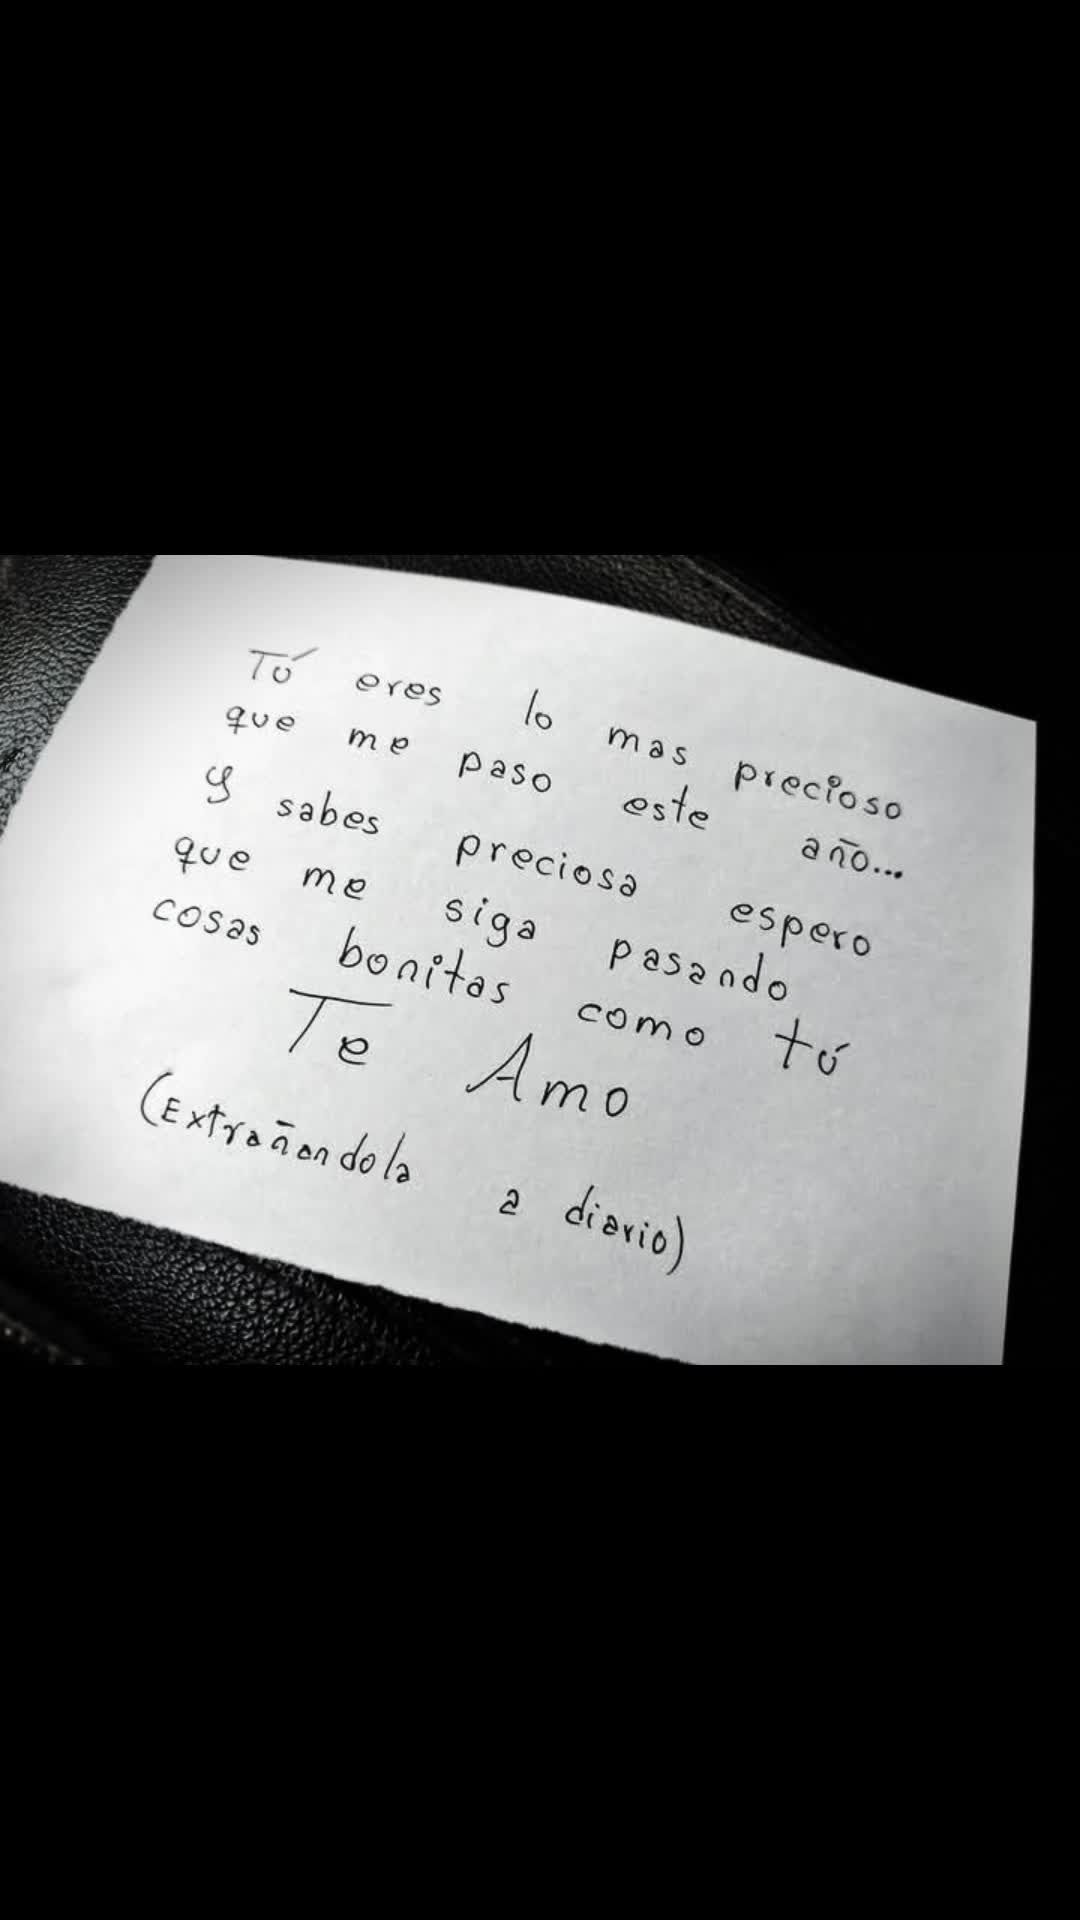 Tú eres lo mas precioso
que me paso este año...
y sabes preciosa espero
que me siga pasando
cosas bonitas como tú
Te Amo
(Extrañandola a diario)